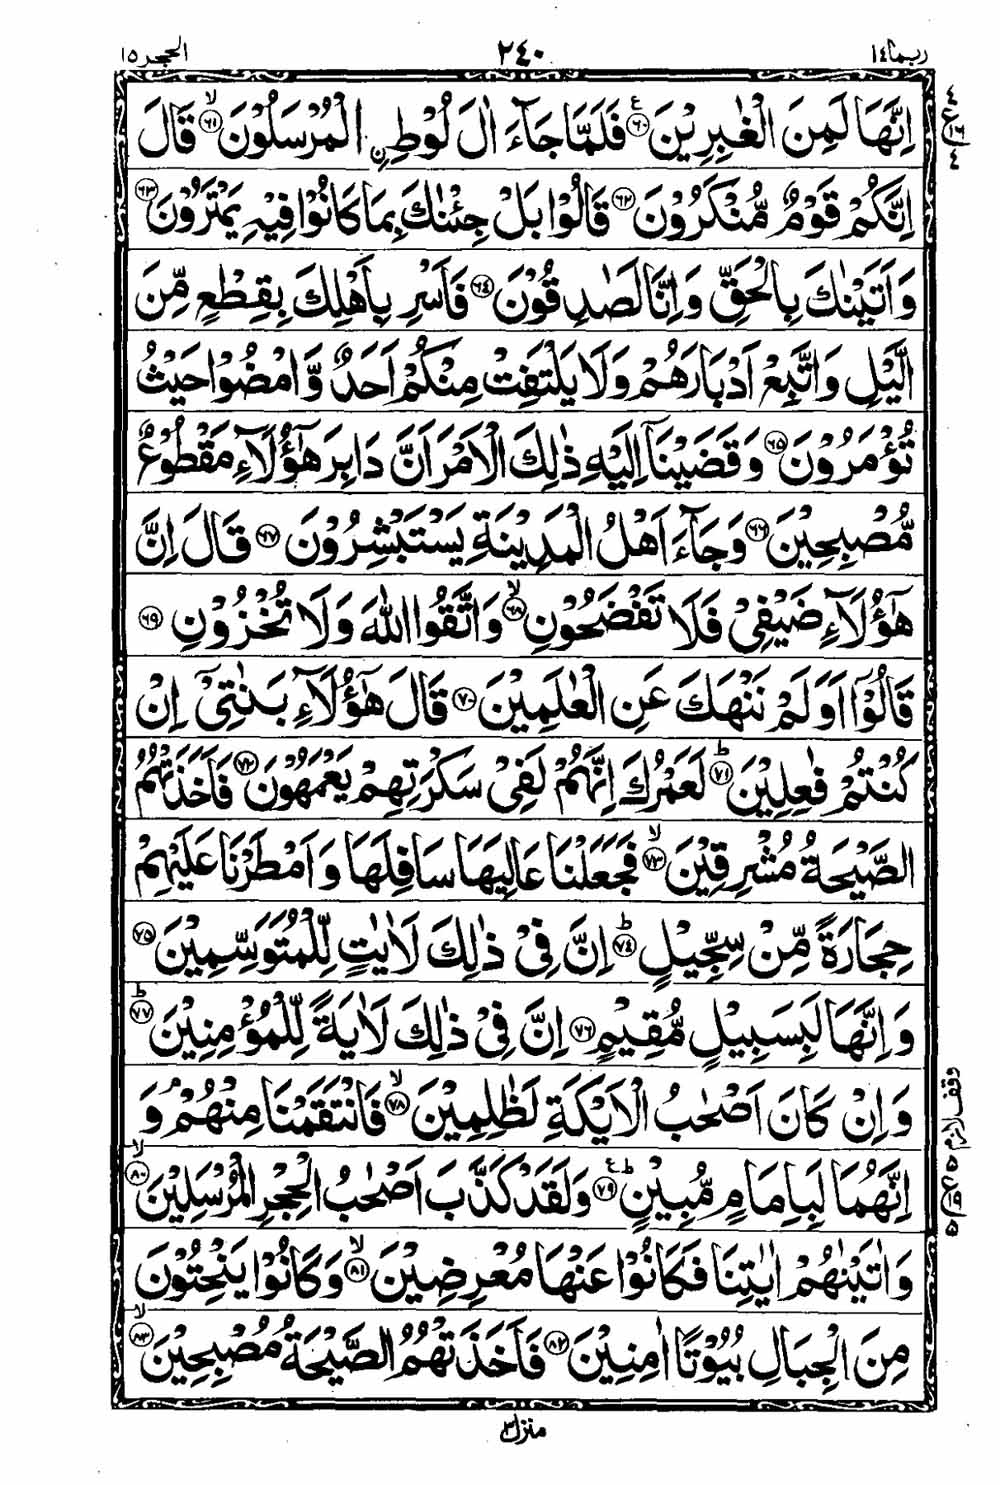 ربما ١٤ ٢٤٠ الحجر ١٥
اِنَّهَا لَمِنَ الْغٰبِرِيْنَ ﴿۶۰﴾ ع فَلَمَّا جَآءَ اٰلَ لُوْطِ ِ۟نِ الْمُرْسَلُوْنَ ﴿۶۱﴾ ۙ قَالَ
اِنَّكُمْ قَوْمٌ مُّنْكَرُوْنَ ﴿۶۲﴾ قَالُوْا بَلْ جِئْنٰكَ بِمَا كَانُوْا فِيْهِ يَمْتَرُوْنَ ﴿۶۳﴾
وَاَتَيْنٰكَ بِالْحَقِّ وَاِنَّا لَصٰدِقُوْنَ ﴿۶۴﴾ فَاَسْرِ بِاَهْلِكَ بِقِطْعٍ مِّنَ
الَّيْلِ وَاتَّبِعْ اَدْبَارَهُمْ وَلَا يَلْتَفِتْ مِنْكُمْ اَحَدٌ وَّامْضُوْا حَيْثُ
تُؤْمَرُوْنَ ﴿۶۵﴾ وَقَضَيْنَآ اِلَيْهِ ذٰلِكَ الْاَمْرَ اَنَّ دَابِرَ هٰٓؤُلَآءِ مَقْطُوْعٌ
مُّصْبِحِيْنَ ﴿۶۶﴾ وَجَآءَ اَهْلُ الْمَدِيْنَةِ يَسْتَبْشِرُوْنَ ﴿۶۷﴾ قَالَ اِنَّ
هٰٓؤُلَآءِ ضَيْفِيْ فَلَا تَفْضَحُوْنِ ﴿۶۸﴾ ۙ وَاتَّقُوا اللّٰهَ وَلَا تُخْزُوْنِ ﴿۶۹﴾
قَالُوْٓا اَوَلَمْ نَنْهَكَ عَنِ الْعٰلَمِيْنَ ﴿۷۰﴾ قَالَ هٰٓؤُلَآءِ بَنٰتِيْٓ اِنْ
كُنْتُمْ فٰعِلِيْنَ ﴿۷۱﴾ ؕ لَعَمْرُكَ اِنَّهُمْ لَفِيْ سَكْرَتِهِمْ يَعْمَهُوْنَ ﴿۷۲﴾ فَاَخَذَتْهُمُ
الصَّيْحَةُ مُشْرِقِيْنَ ﴿۷۳﴾ ۙ فَجَعَلْنَا عَالِيَهَا سَافِلَهَا وَاَمْطَرْنَا عَلَيْهِمْ
حِجَارَةً مِّنْ سِجِّيْلٍ ﴿۷۴﴾ ؕ اِنَّ فِيْ ذٰلِكَ لَاٰيٰتٍ لِّلْمُتَوَسِّمِيْنَ ﴿۷۵﴾
وَاِنَّهَا لَبِسَبِيْلٍ مُّقِيْمٍ ﴿۷۶﴾ اِنَّ فِيْ ذٰلِكَ لَاٰيَةً لِّلْمُؤْمِنِيْنَ ﴿۷۷﴾ ؕ
وَاِنْ كَانَ اَصْحٰبُ الْاَيْكَةِ لَظٰلِمِيْنَ ﴿۷۸﴾ ۙ فَانْتَقَمْنَا مِنْهُمْ ۘ وَ
اِنَّهُمَا لَبِاِمَامٍ مُّبِيْنٍ ﴿۷۹﴾ ؕ ع وَلَقَدْ كَذَّبَ اَصْحٰبُ الْحِجْرِ الْمُرْسَلِيْنَ ﴿۸۰﴾ ۙ
وَاٰتَيْنٰهُمْ اٰيٰتِنَا فَكَانُوْا عَنْهَا مُعْرِضِيْنَ ﴿۸۱﴾ ۙ وَكَانُوْا يَنْحِتُوْنَ
مِنَ الْجِبَالِ بُيُوْتًا اٰمِنِيْنَ ﴿۸۲﴾ فَاَخَذَتْهُمُ الصَّيْحَةُ مُصْبِحِيْنَ ﴿۸۳﴾ ۙ
منزل ٣
٤ ع ١٦ ٤
وقف لازم
٥ ع ١٩ ٥